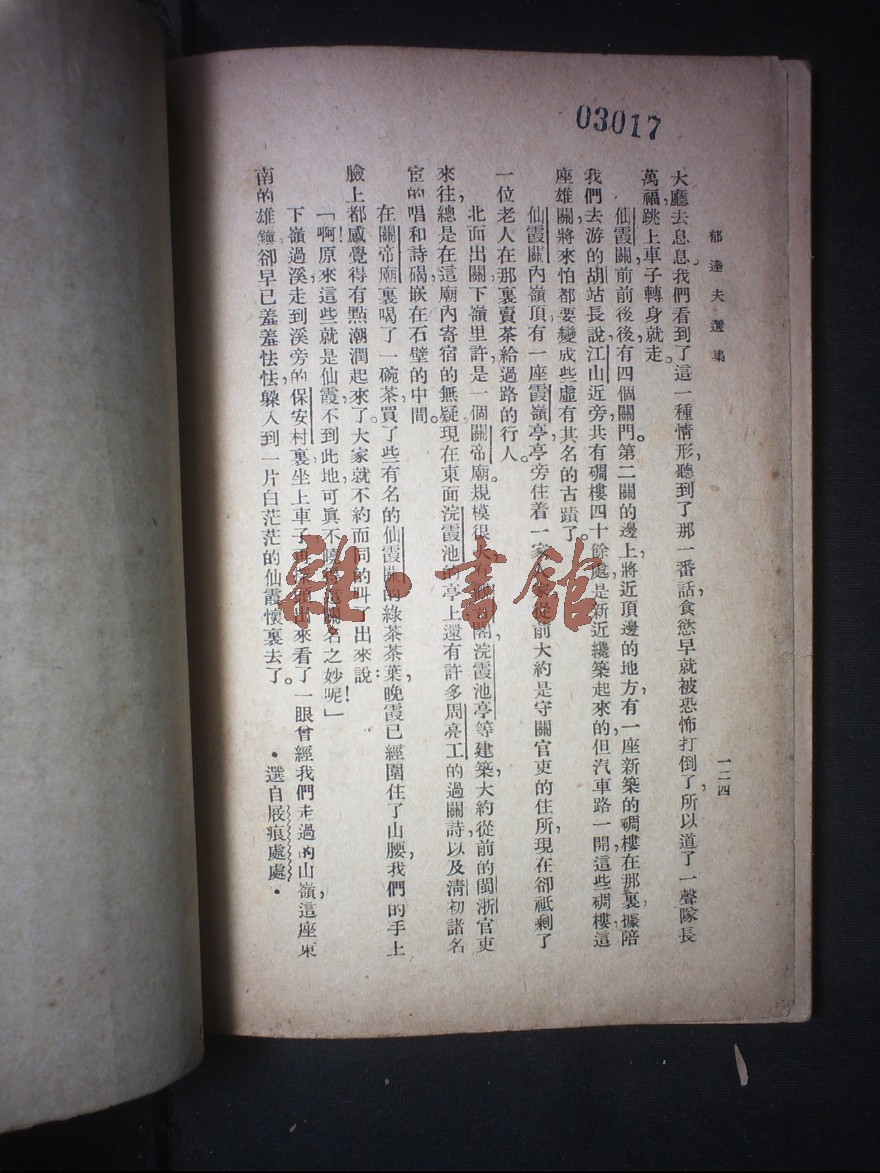 03017
郁達夫選集
一二四
大廳去息息。我們看到了這一種情形，聽到了那一番話，食慾早就被恐怖打倒了，所以道了一聲隊長
萬福，跳上車子轉身就走。
仙霞關前前後後，有四個關門。第二關的邊上，將近頂邊的地方，有一座新築的碉樓在那裏，據陪
我們去游的胡站長說，江山近旁，共有碉樓四十餘處，是新近纔築起來的，但汽車路一開，這些碉樓，這
座雄關，將來怕都要變成些虛有其名的古蹟了。
仙霞關內嶺頂，有一座霞嶺亭，亭旁住着一家 從前大約是守關官吏的住所，現在卻祇剩了
一位老人，在那裏賣茶給過路的行人。
北面出關，下嶺里許，是一個關帝廟。規模很大，有 閣，浣霞池亭等建築，大約從前的閩浙官吏
來往，總是在這廟內寄宿的無疑。現在東面浣霞池的亭上，還有許多周亮工的過關詩，以及清初諸名
宦的唱和詩碣，嵌在石壁的中間。
在關帝廟裏喝了一碗茶，買了些有名的仙霞關的綠茶茶葉，晚霞已經圍住了山腰，我們的手上
臉上都感覺得有點潮潤起來了。大家就不約而同的叫了出來說：
「啊！原來這些就是仙霞！不到此地，可真不 關名之妙呢！」
下嶺過溪，走到溪旁的保安村裏，坐上車子，再 頭出來看了一眼曾經我們走過的山嶺，這座東
南的雄鎮卻早已羞羞怯怯，躱入到一片白茫茫的仙霞懷裏去了。
・選自屐痕處處・
雜・書館